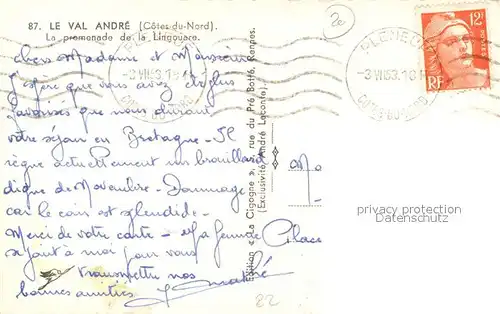 87. LE VAL ANDRÉ (Côtes-du-Nord).
La promenade de la Linguoare.
chers Madame et Monsieur
J'espère que vous avez été plus
favorisés que nous durant
votre séjour en Bretagne - Il
règne actuellement un brouillard
digne de - Dommage
car le coin est splendide -
Merci de votre carte - Ma femme
se joint à moi pour vous
transmettre nos
bonnes amitiés
PLENEUF
-3 VII 53. 18
COTES-DU-NORD
PLENEUF
-3 VII 53. 18
COTES-DU-NORD
12F
RF
Edition « La Cigogne », rue du Pré Botté, Rennes.
(Exclusivité André Leconte)
Mo
Place
privacy protection
Datenschutz
22